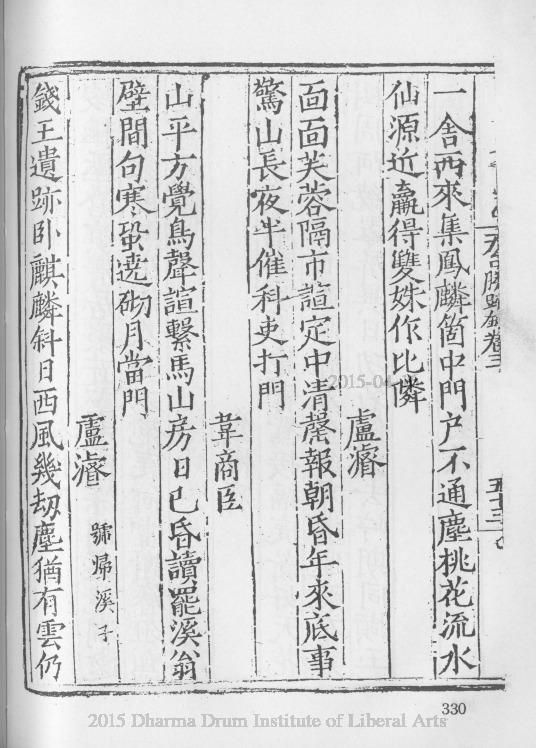 天台勝蹟錄卷三 五十三
一舍西來集鳳麟箇中門户不通塵桃花流水
仙源近贏得雙姝作比隣
盧濬
靣靣芙蓉隔市諠定中清磬報朝昏年來底事
驚山長夜半催科吏打門
韋商臣
山平方覺鳥聲諠繫馬山房日已昏讀罷溪翁
壁間句寒蛩遶砌月當門
盧濬 號歸溪子
錢王遺跡卧麒麟斜日西風幾刼塵猶有雲仍
330
2015-04
2015 Dharma Drum Institute of Liberal Arts